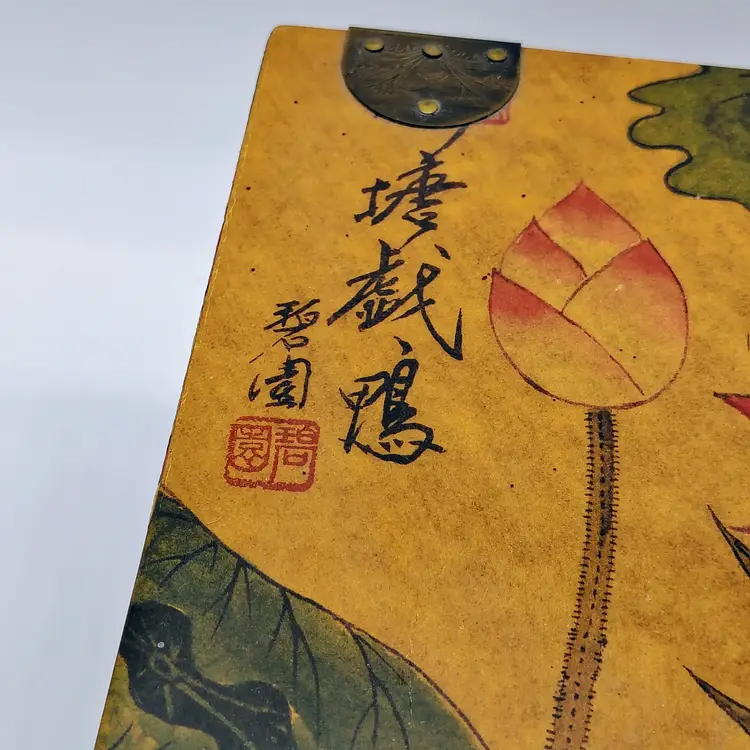 塘戯鴨
碧園
碧園